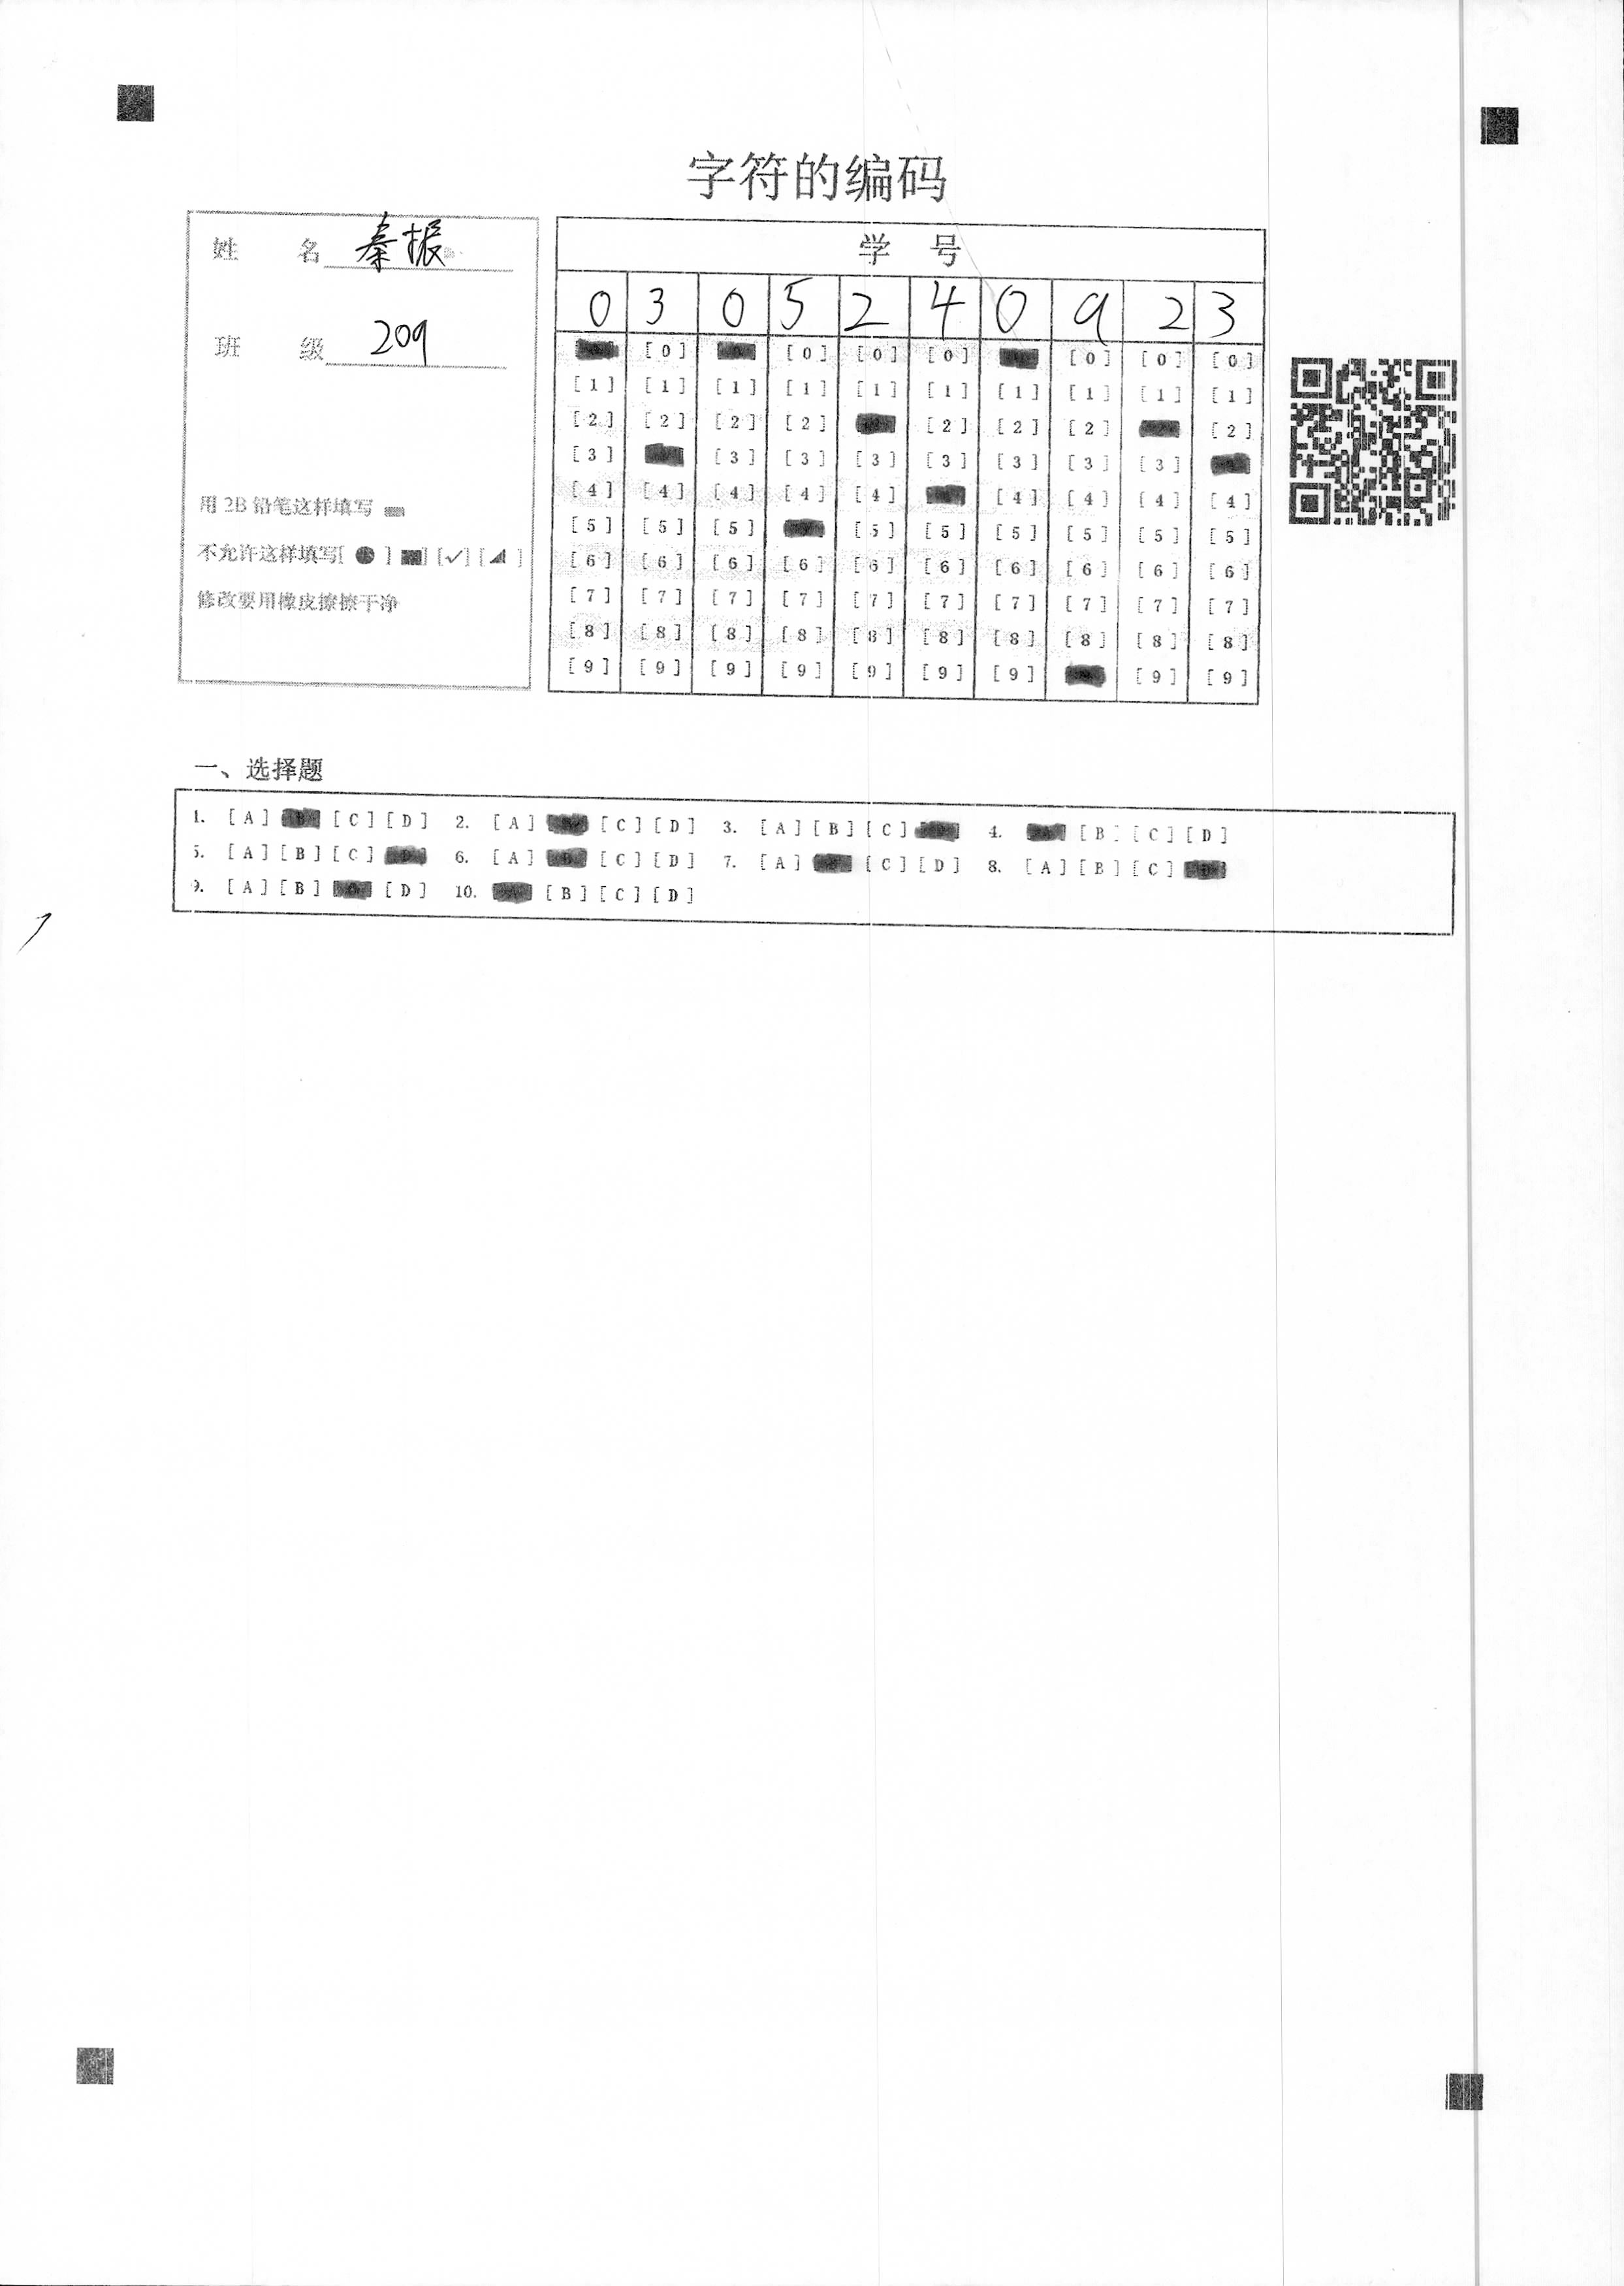 字符的编码
姓 名 秦振
班 级 209
用 2B 铅笔这样填写
不允许这样填写[ ● ] ■] [✓] [◢ ]
修改要用橡皮擦擦干净
学 号
0 3 0 5 2 4 0 9 2 3
[0] [0] [0] [0] [0] [0] [0]
[1] [1] [1] [1] [1] [1] [1] [1] [1] [1]
[2] [2] [2] [2] [2] [2] [2] [2]
[3] [3] [3] [3] [3] [3] [3] [3]
[4] [4] [4] [4] [4] [4] [4] [4] [4]
[5] [5] [5] [5] [5] [5] [5] [5] [5]
[6] [6] [6] [6] [6] [6] [6] [6] [6] [6]
[7] [7] [7] [7] [7] [7] [7] [7] [7] [7]
[8] [8] [8] [8] [8] [8] [8] [8] [8] [8]
[9] [9] [9] [9] [9] [9] [9] [9] [9]
一、选择题
1. [A] [B] [C] [D] 2. [A] [C] [D] 3. [A] [B] [C] 4. [B] [C] [D]
5. [A] [B] [C] [D] 6. [A] [B] [C] [D] 7. [A] [C] [D] 8. [A] [B] [C]
9. [A] [B] [D] 10. [B] [C] [D]